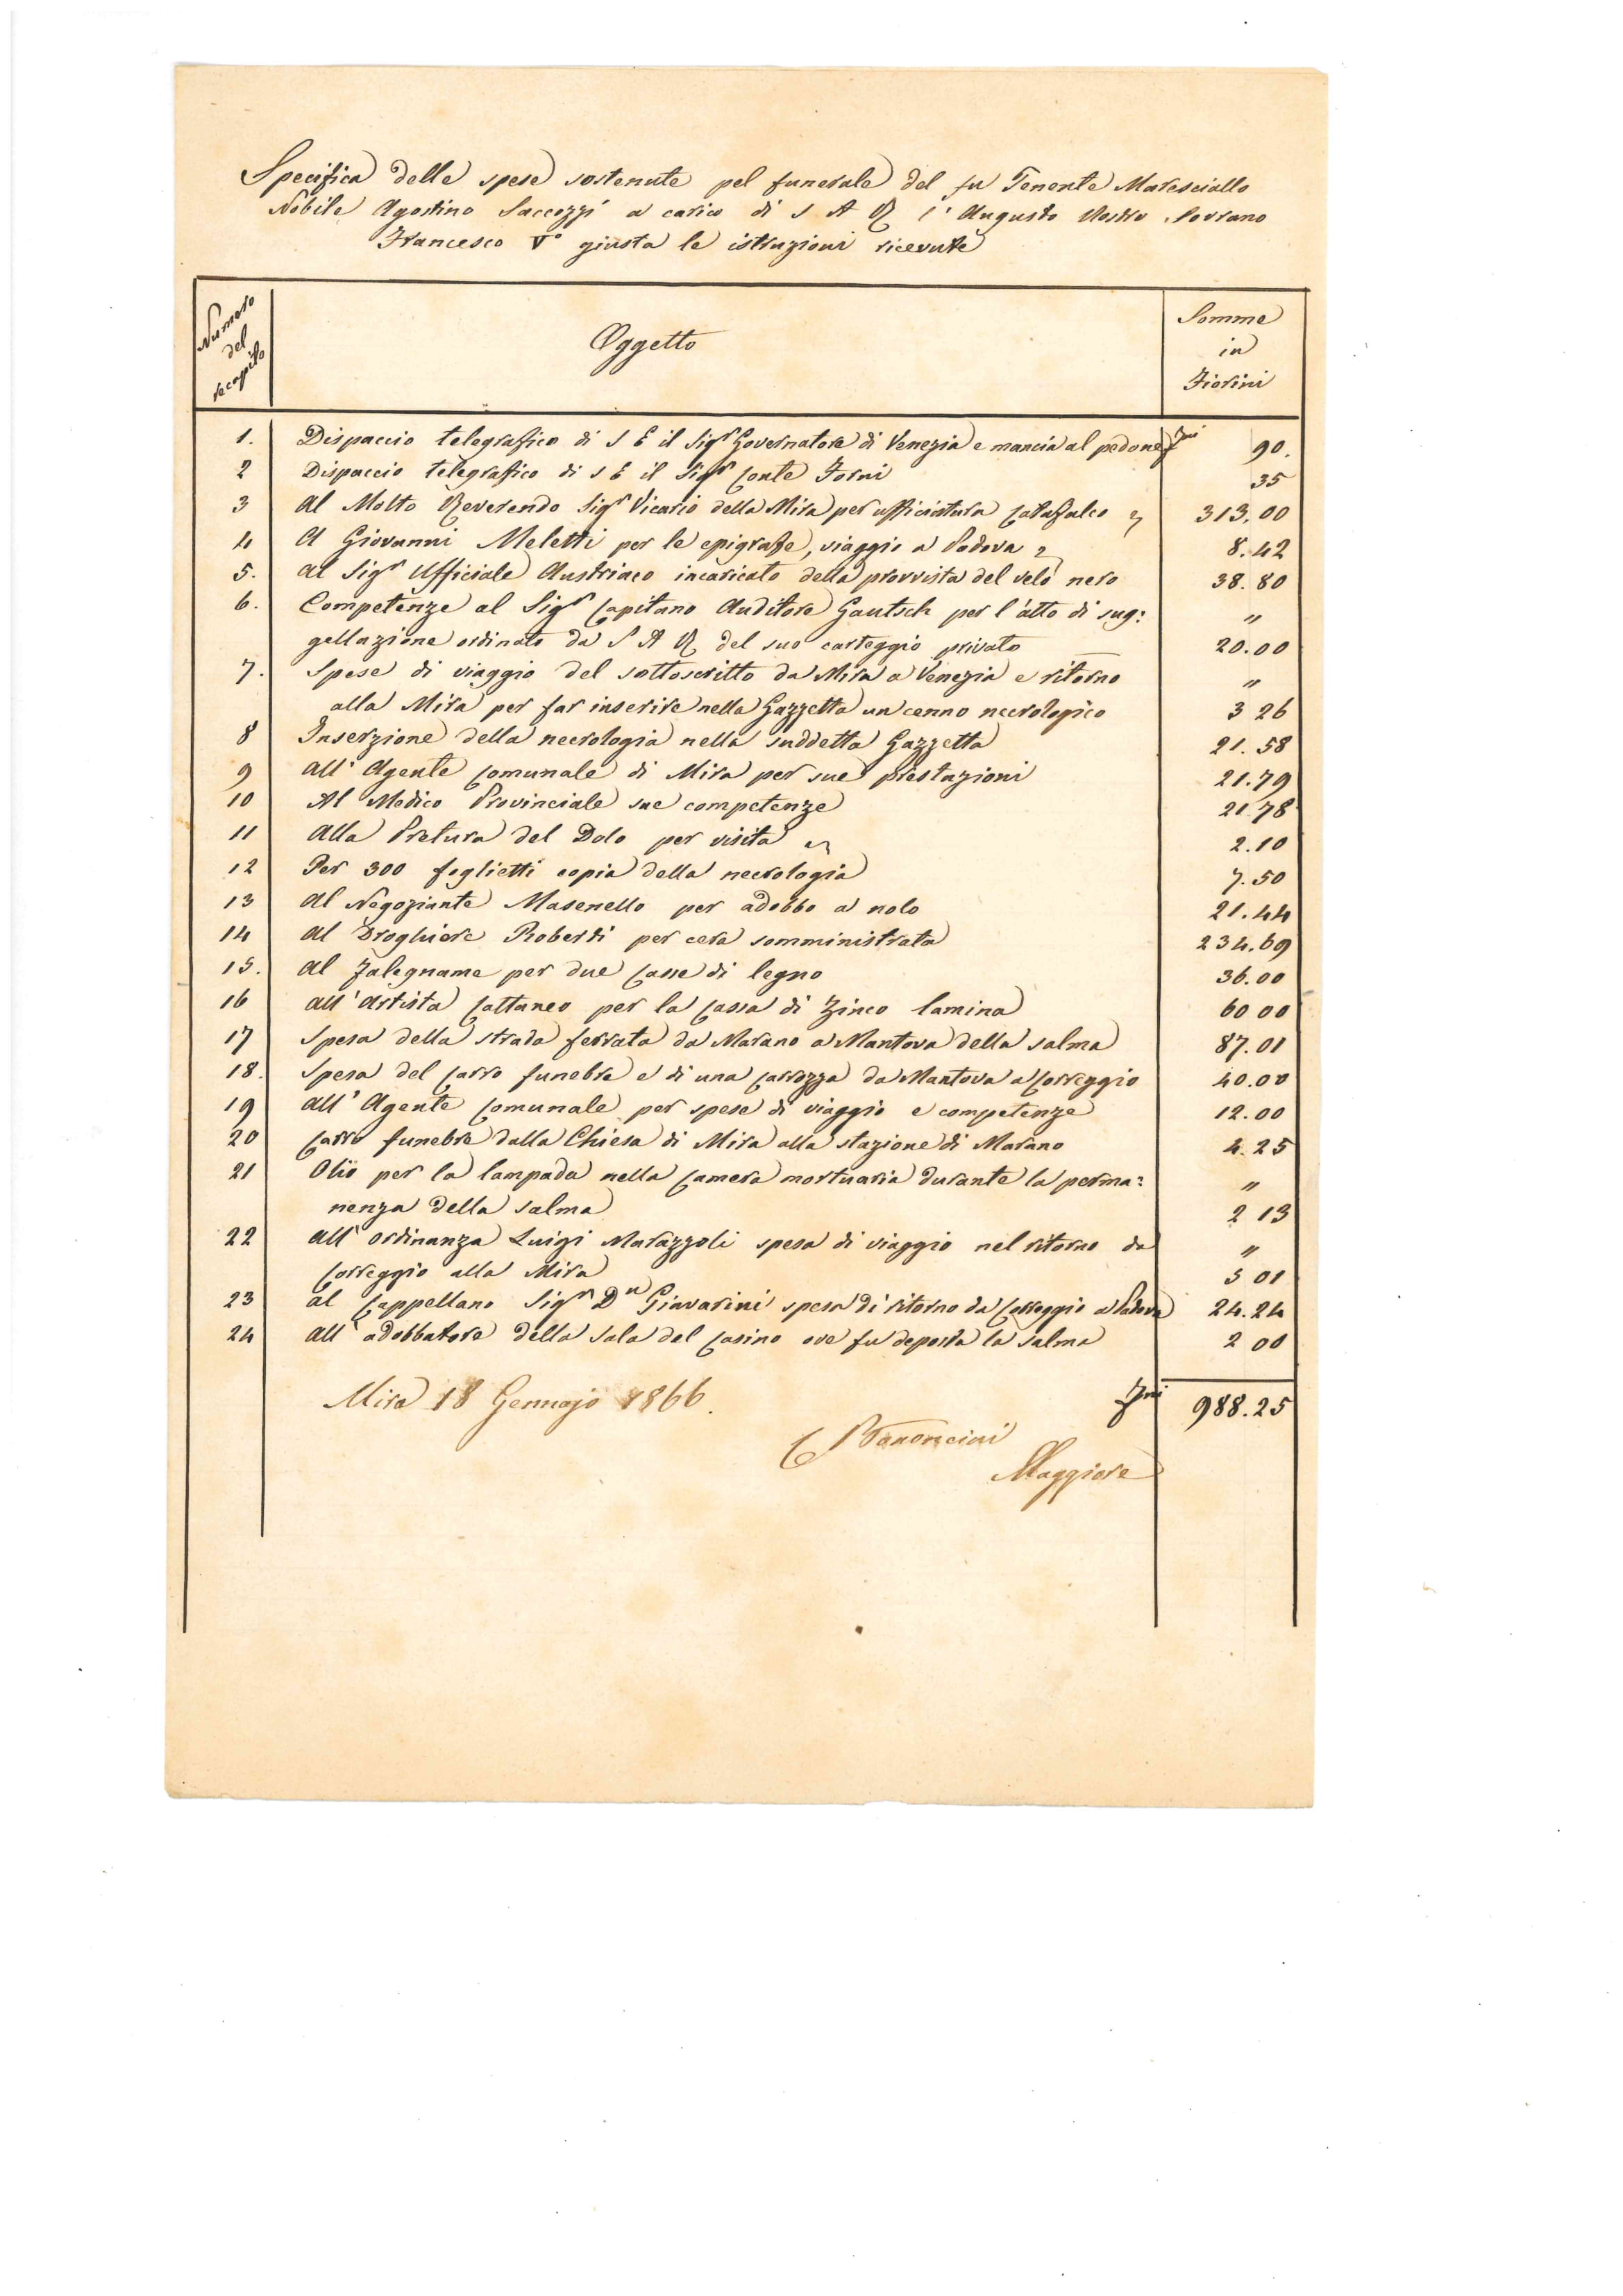 Specifica delle spese sostenute pel funerale del fu Tenente Maresciallo
Nobile Agostino Saccozzi a carico di S A R l'Augusto Nostro Sovrano
Francesco V° giusta le istruzioni ricevute
Numero del recapito
Oggetto
Somme in Fiorini
1. Dispaccio telegrafico di S E il Sigr Governatore di Venezia e mancia al pedone fni 90.
2 Dispaccio telegrafico di S E il Sigr Conte Forni 35
3 Al Molto Reverendo Sigr Vicario della Mira per ufficiatura catafalco 313.00
4 A Giovanni Meletti per le epigrafe, viaggio a Padova 8.42
5. Al Sigr Ufficiale Austriaco incaricato della provvista del velo nero 38.80
6. Competenze al Sigr Capitano Auditore Gautsch per l'atto di sug: "
gellazione ordinato da S A R del suo carteggio privato 20.00
7. Spese di viaggio del sottoscritto da Mira a Venezia e ritorno "
alla Mira per far inserire nella Gazzetta un cenno necrologico 3 26
8 Inserzione della necrologia nella suddetta Gazzetta 21.58
9 All'Agente Comunale di Mira per sue prestazioni 21.79
10 Al Medico Provinciale sue competenze 21.78
11 Alla Pretura del Dolo per visita 2.10
12 Per 300 foglietti copia della necrologia 7.50
13 Al Negoziante Masenello per adobbo a nolo 21.44
14 Al Droghiere Roberti per cera somministrata 234.69
15. Al Falegname per due Casse di legno 36.00
16 All'Artista Cattaneo per la Cassa di Zinco lamina 60 00
17 Spesa della strada ferrata da Marano a Mantova della salma 87.01
18. Spesa del Carro funebre e di una Carrozza da Mantova a Correggio 40.00
19 All'Agente Comunale per spese di viaggio e competenze 12.00
20 Carro funebre dalla Chiesa di Mira alla stazione di Marano 4.25
21 Olio per la lampada nella Camera mortuaria durante la perma: "
nenza della salma 2 13
22 All'ordinanza Luigi Marazzoli spesa di viaggio nel ritorno da "
Correggio alla Mira 5 01
23 Al Cappellano Sigr Dn Giavarini spesa di ritorno da Correggio a Padova 24.24
24 All'adobbatore della Sala del Casino ove fu deposta la salma 2 00
Mira 18 Gennajo 1866. fni 988.25
Maggiore